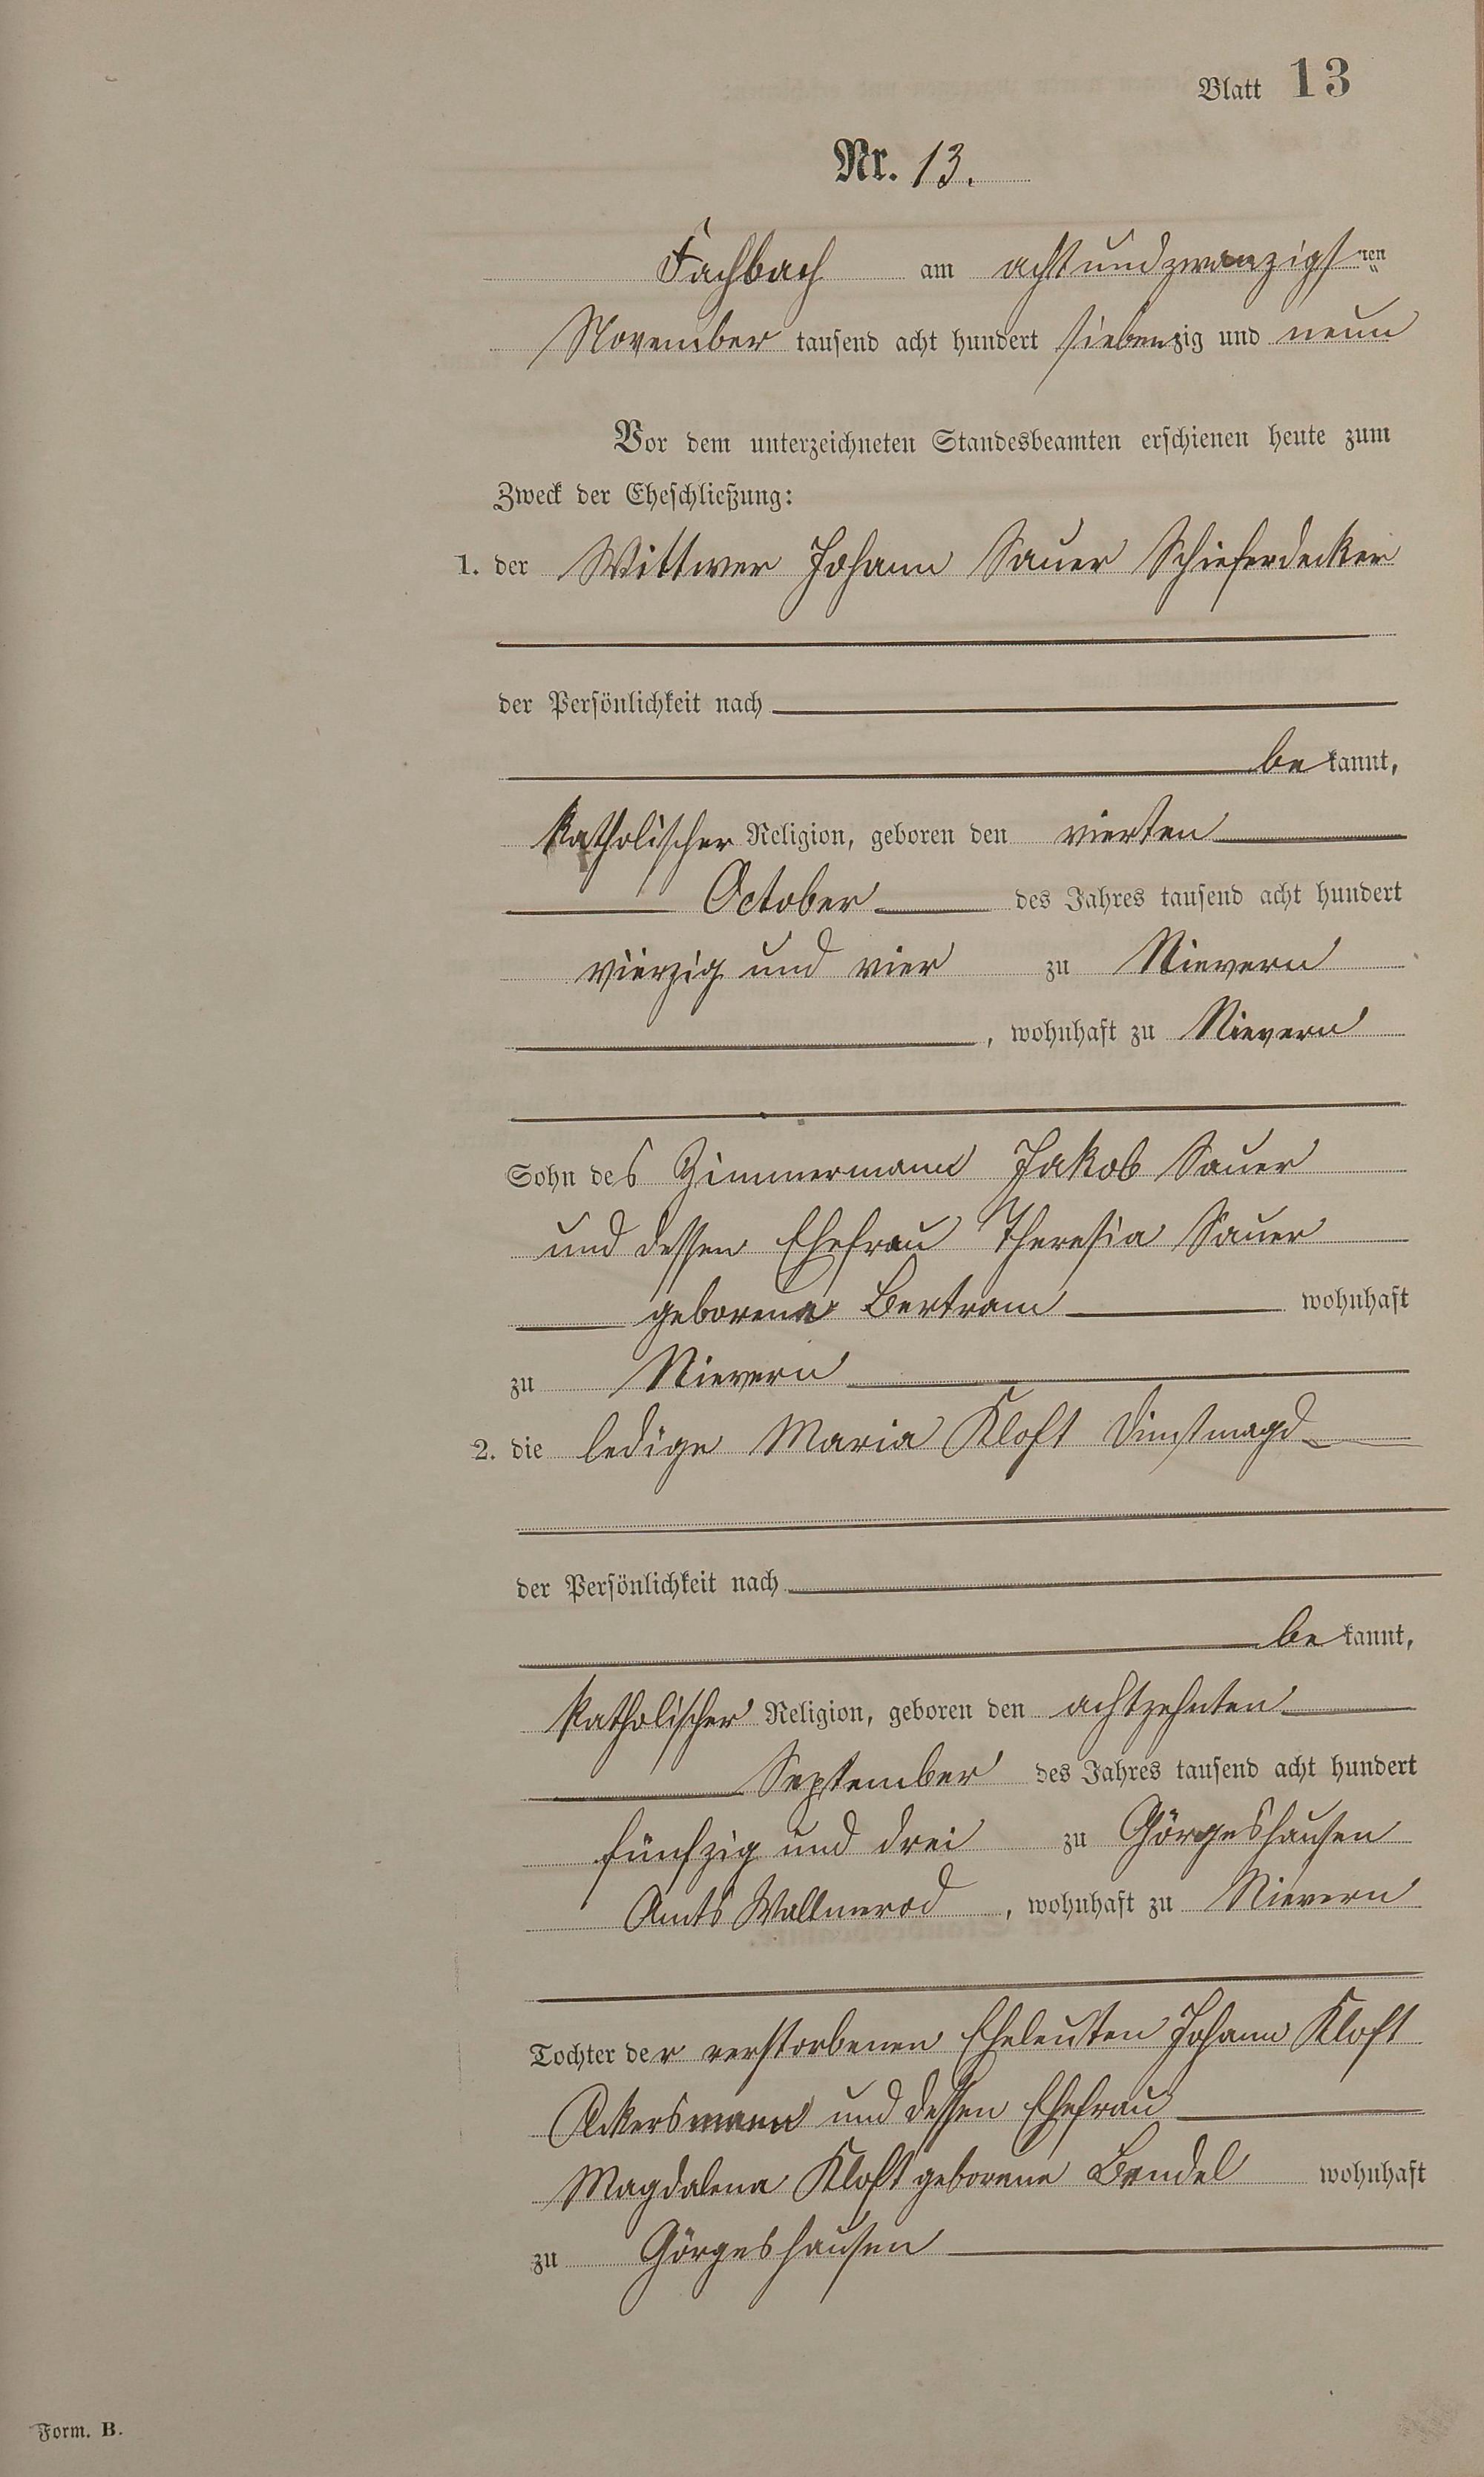 Blatt 13
Nr. 13.
Fachbach am achtundzwanzigsten
November tausend acht hundert siebenzig und neun
Vor dem unterzeichneten Standesbeamten erschienen heute zum
Zweck der Eheschließung:
1. der Wittwer Johann Sauer Schieferdecker
der Persönlichkeit nach
be kannt,
katholischer Religion, geboren den vierten
October des Jahres tausend acht hundert
vierzig und vier zu Nievern
, wohnhaft zu Nievern
Sohn des Zimmermann Jakob Sauer
und dessen Ehefrau Theresia Sauer
geborene Bertram wohnhaft
zu Nievern
2. die ledige Maria Kloft Dienstmagd
der Persönlichkeit nach
be kannt,
katholischer Religion, geboren den achtzehnten
September des Jahres tausend acht hundert
fünfzig und drei zu Görgeshausen
Amts Wallmerod , wohnhaft zu Nievern
Tochter der verstorbenen Eheleuten Johann Kloft
Ackersmann und dessen Ehefrau
Magdalena Kloft geborene Bendel wohnhaft
zu Görgeshausen
Form. B.